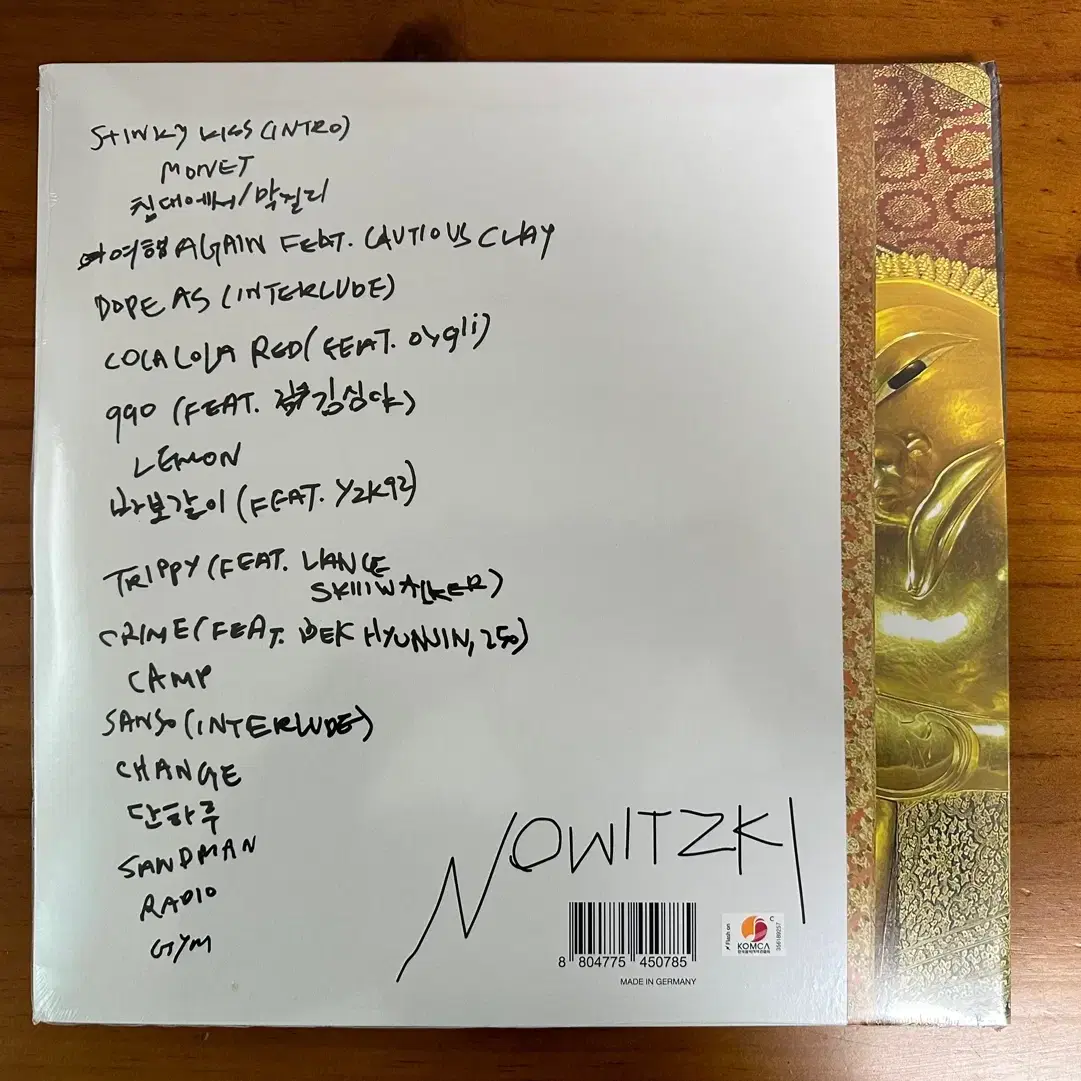 STINKY KISS (INTRO)
MONET
침대에서/막걸리
여행 AGAIN FEAT. CAUTIOUS CLAY
DOPE AS (INTERLUDE)
COCA COLA RED (FEAT. oygli)
990 (FEAT. 김심야)
LEMON
바보같이 (FEAT. YZK92)
TRIPPY (FEAT. LANCE
SKIIIWALKER)
CRIME (FEAT. BEK HYUNJIN, 250)
CAMP
SANSO (INTERLUDE)
CHANGE
단하루
SANDMAN
RADIO
GYM
NOWITZKI
8 804775 450785
MADE IN GERMANY
KOMCA